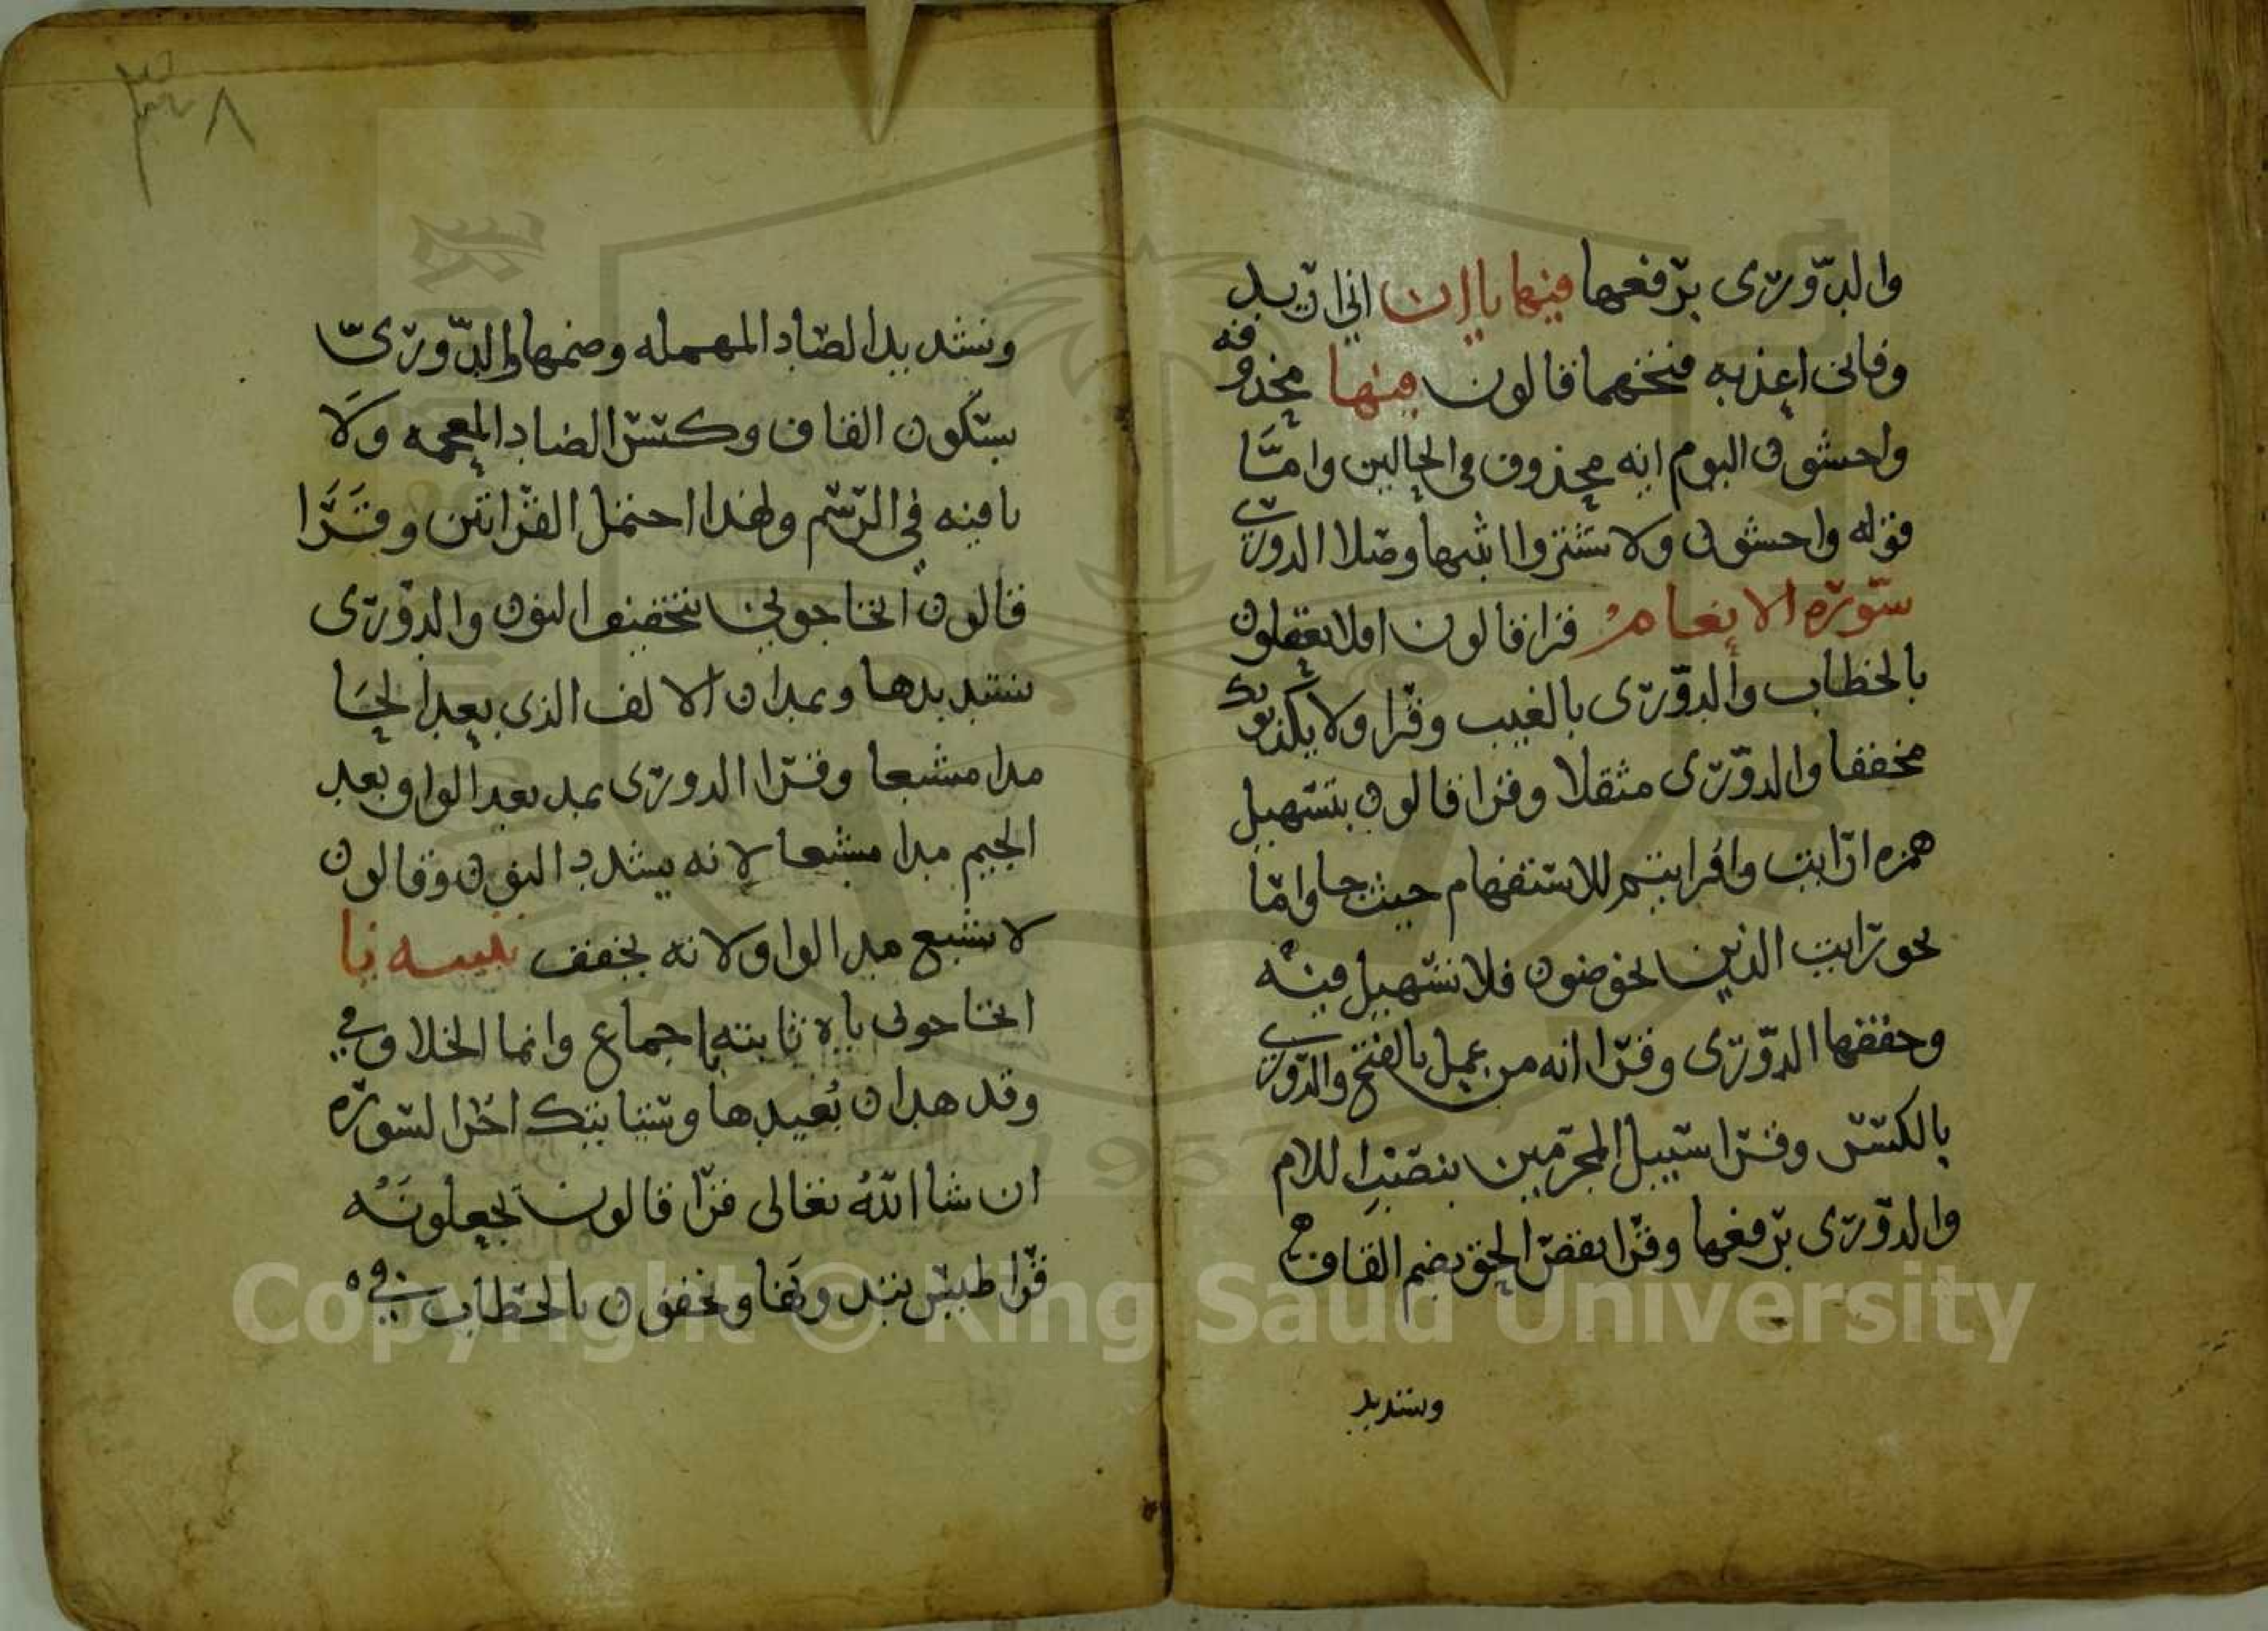 والدوري برفعها فيها ياان اني اريد
وفاني اعذبه فتحهما قالون فيها محذوفه
واخشون اليوم انه محذوف في الحالين واما
قوله واخشون ولا تشتروا اثبتها وصلا الدوري
سورة الانعام قرا قالون افلا تعقلون
بالخطاب والدوري بالغيب وقرا ولا يكذبونك
مخففا والدوري مثقلا وقرا قالون بتسهيل
همزه ارايت وافرايتم للاستفهام حيث جا واما
نحو رايت الذين يخوضون فلا تسهيل فيه
وحققها الدوري وقرا انه من عمل بالفتح والدوري
بالكسر وقرا سبيل المجرمين بنصب اللام
والدوري برفعها وقرا يقص الحق بضم القاف
وتشديد
٣٨
وتشديد الصاد المهمله وضمها والدوري
بسكون القاف وكسر الضاد المعجمه ولا
يا فيه في الرسم ولهذا احتمل القراتين وقرا
قالون اتحاجوني بتخفيف النون والدوري
بتشديدها ويمدان الالف الذي بعد الحا
مدا مشبعا وقرا الدوري بمد بعد الواو وبعد
الجيم مدا مشبعا لانه يشدد النون وقالون
لا يشبع مد الواو لانه يخفف تنبيه يا
اتحاجوني ياه ثابته باجماع وانما الخلاف في
وقد هدان نعيدها وتتنا بتك اخر السورة
ان شا الله تعالى قرا قالون تجعلونه
قراطيس تبدونها وتخفون بالخطاب في